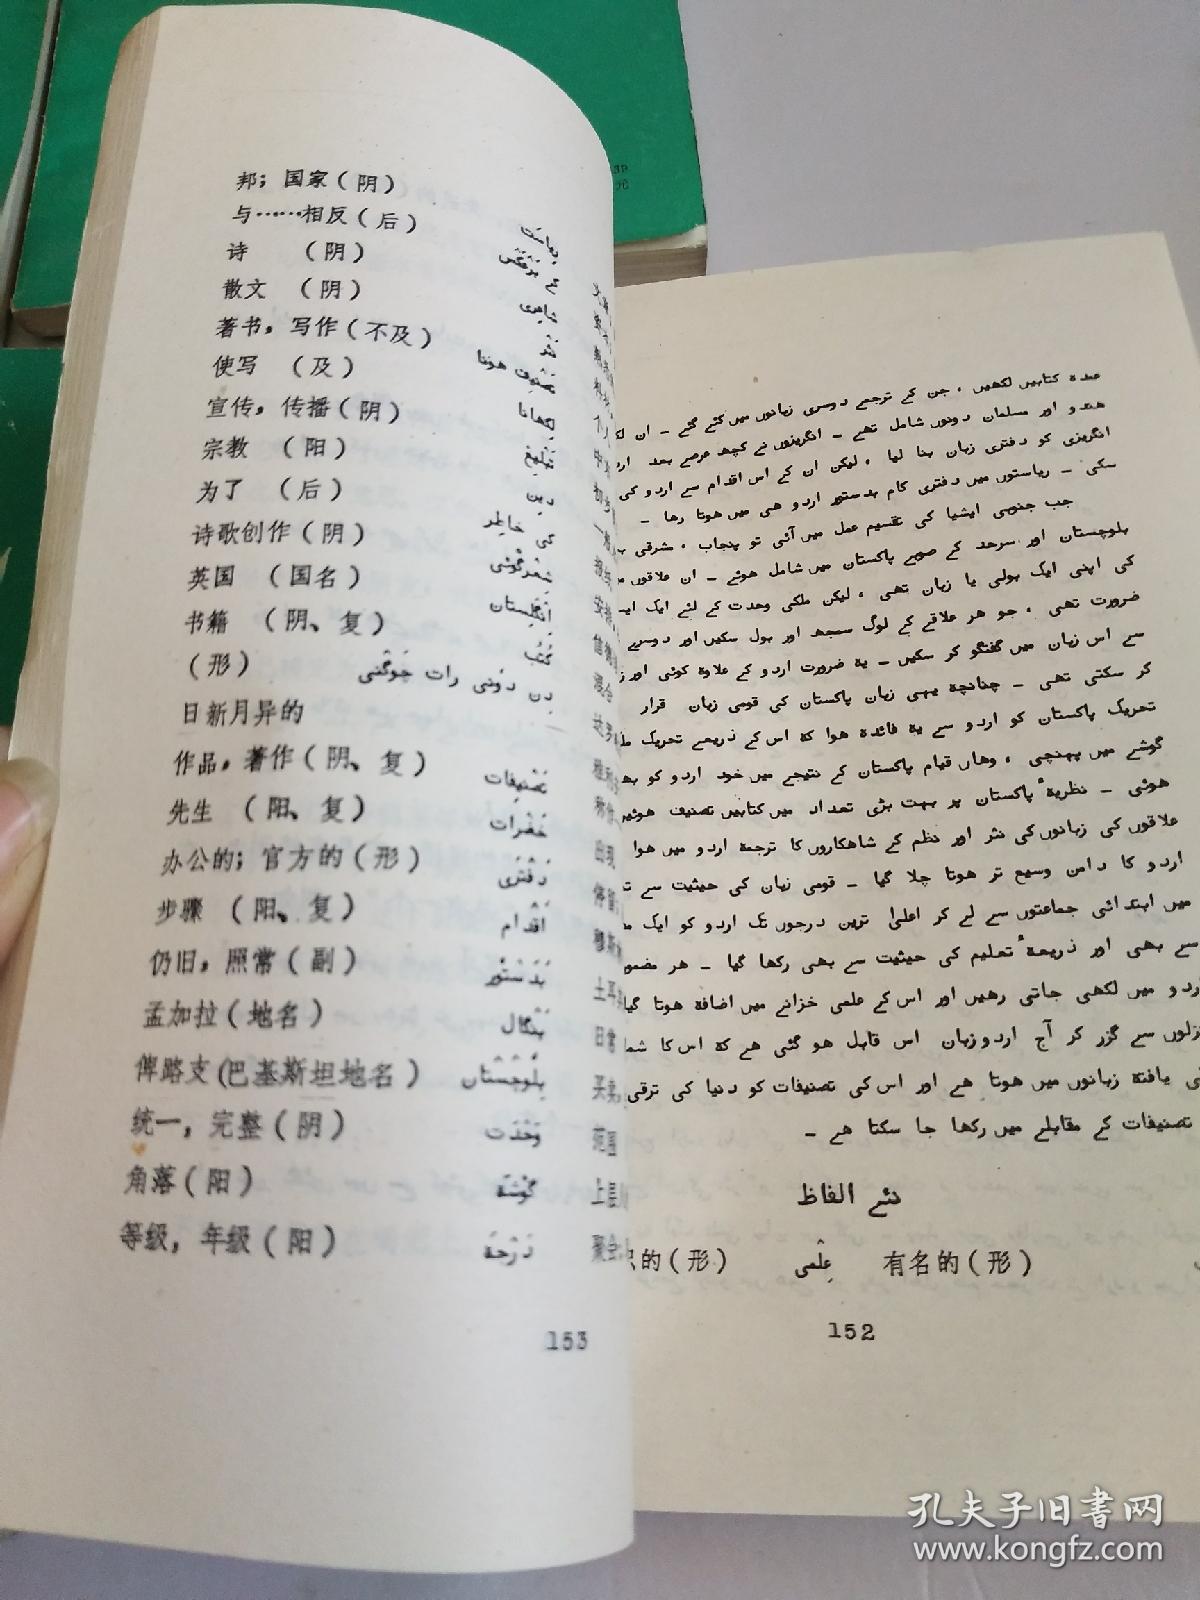 邦；国家（阴） ریاست
与……相反（后） کے برعکس
诗 （阴） شاعری
散文 （阴） نثر
著书，写作（不及） تصنیف ہونا
使写 （及） لکھانا
宣传，传播（阴） تبلیغ
宗教 （阳） دین
为了 （后） کی خاطر
诗歌创作（阴） شعرگوئی
英国 （国名） انگلستان
书籍 （阴、复） کتب
（形） دن دونی رات چوگنی
日新月异的
作品，著作（阴、复） تصنیفات
先生 （阳、复） حضرات
办公的；官方的（形） دفتری
步骤 （阳、复） اقدام
仍旧，照常（副） بدستور
孟加拉（地名） بنگال
俾路支（巴基斯坦地名） بلوچستان
统一，完整（阴） وحدت
角落（阳） گوشہ
等级，年级（阳） درجہ
153
عمدہ کتابیں لکھیں ، جن کے ترجمے دوسری زبانوں میں کئے گئے ۔ ان
ہندو اور مسلمان دونوں شامل تھے ۔ انگریزوں نے کچھ عرصے بعد
انگریزی کو دفتری زبان بنا لیا ، لیکن ان کے اس اقدام سے اردو کی
سکی ۔ ریاستوں میں دفتری کام بدستور اردو ہی میں ہوتا رہا ۔
جب جنوبی ایشیا کی تقسیم عمل میں آئی تو پنجاب ، شرقی
بلوچستان اور سرحد کے صوبے پاکستان میں شامل ہوئے ۔ ان علاقوں
کی اپنی ایک بولی یا زبان تھی ، لیکن ملکی وحدت کے لئے ایک
ضرورت تھی ، جو ہر علاقے کے لوگ سمجھ اور بول سکیں اور دوسرے
سے اس زبان میں گفتگو کر سکیں ۔ یہ ضرورت اردو کے علاوہ کوئی اور
کر سکتی تھی ۔ چنانچہ یہی زبان پاکستان کی قومی زبان قرار
تحریک پاکستان کو اردو سے یہ فائدہ ہوا کہ اس کے ذریعے تحریک
گوشے میں پہنچی ، وہاں قیام پاکستان کے نتیجے میں خود اردو کو
ہوئی ۔ نظریۂ پاکستان پر بہت بڑی تعداد میں کتابیں تصنیف
علاقوں کی زبانوں کی نثر اور نظم کے شاہکاروں کا ترجمہ اردو میں ہوا
اردو کا دامن وسیع تر ہوتا چلا گیا ۔ قومی زبان کی حیثیت سے
میں ابتدائی جماعتوں سے لے کر اعلیٰ ترین درجوں تک اردو کو ایک
سے بھی اور ذریعۂ تعلیم کی حیثیت سے بھی رکھا گیا ۔ ہر
اردو میں لکھی جاتی رہیں اور اس کے علمی خزانے میں اضافہ ہوتا گیا
سے گزر کر آج اردو زبان اس قابل ہو گئی ہے کہ اس کا
یافتہ زبانوں میں ہوتا ہے اور اس کی تصنیفات کو دنیا کی ترقی
تصنیفات کے مقابلے میں رکھا جا سکتا ہے ۔
نئے الفاظ
的（形） علمی 有名的（形）
152
孔夫子旧书网
www.kongfz.com